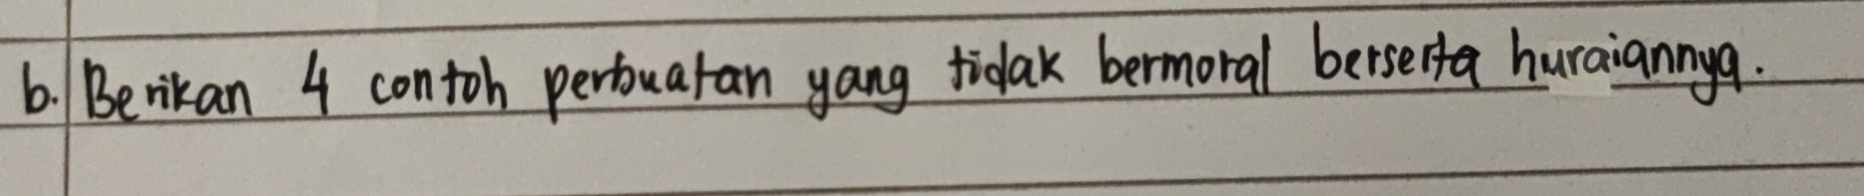 b. Berikan 4 contoh perbuatan yang tidak bermoral berserta huraiannya.